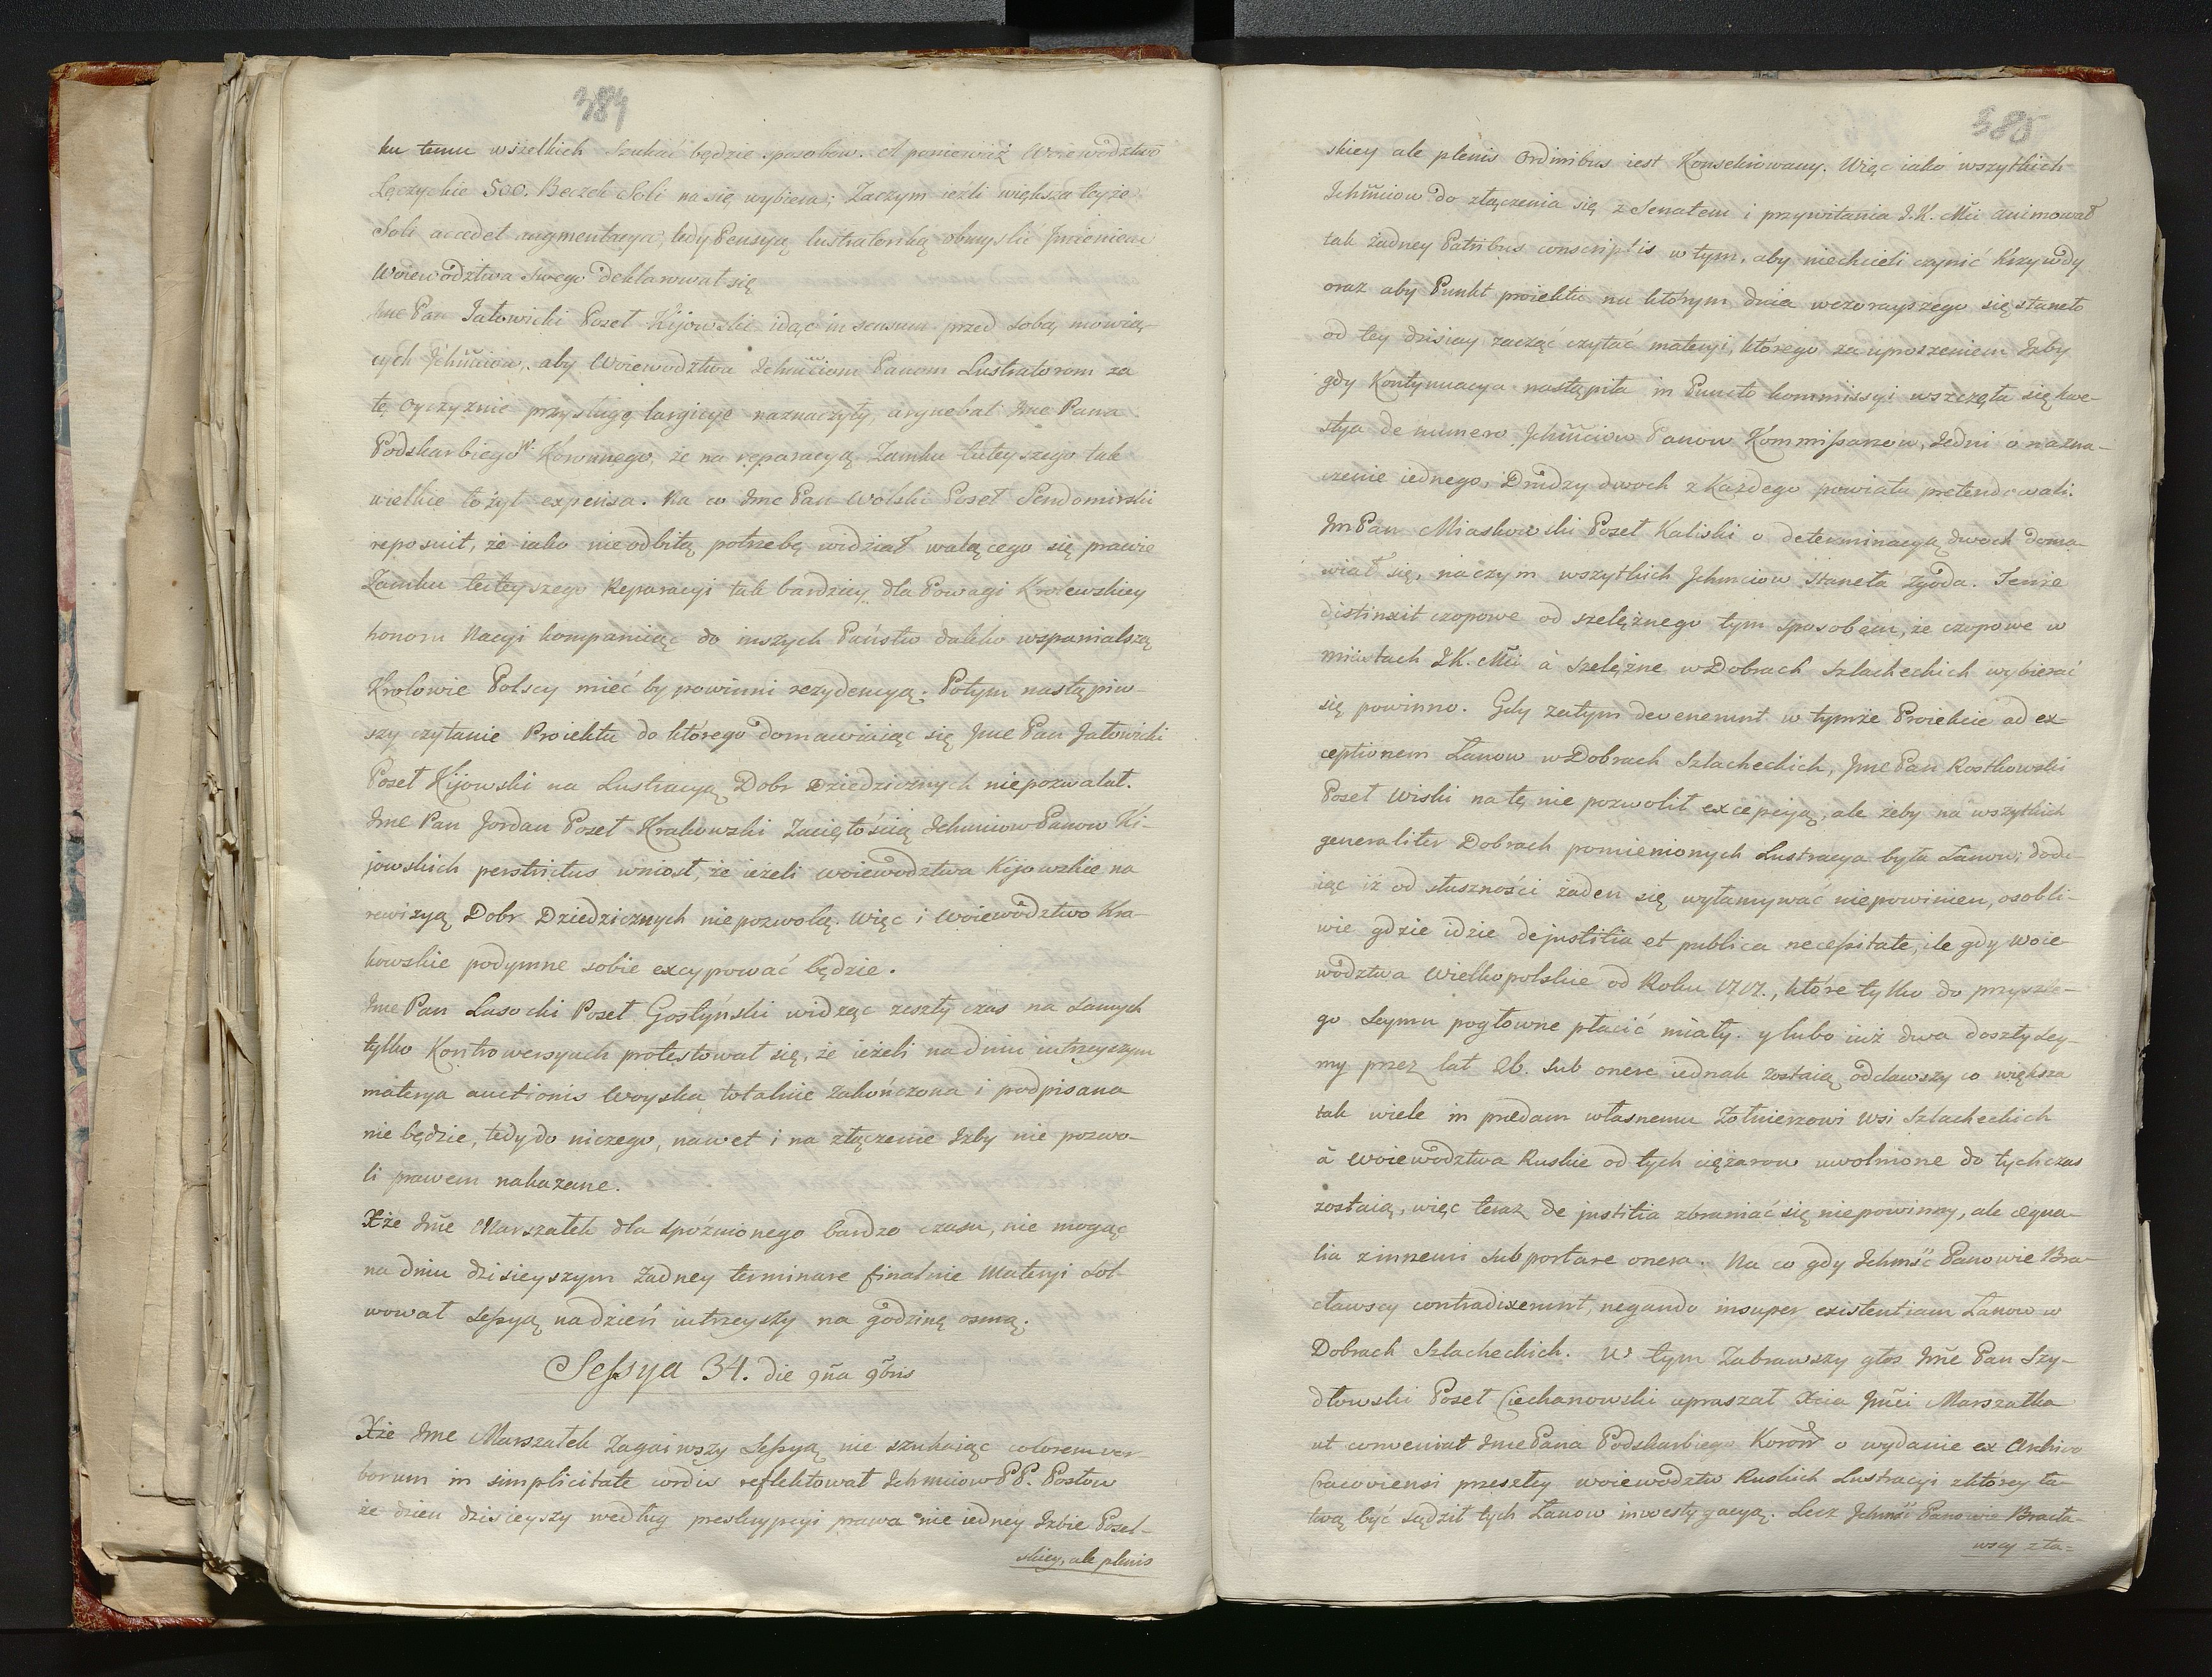 384
ku temu wszelkich szukać będzie sposobow. A ponieważ Woiewodztwo
Łęczyckie 500. Beczek Soli na się wybiera; Zaczym ieźli większa teyże
Soli accedet augmentacya, tedy Pensyą lustratorską obmyslić Imieniem
Woiewodztwa swego deklarował się
Jme Pan Jałowicki Poseł Kijowski idąc in sensum przed sobą mowią-
cych Jchmciow, aby Woiewodztwa Jchmciom Panom Lustratorom za
tę oyczyznie przysługę largicye naznaczyły, arguebat Jme Pana
Podskarbiego W. Koronnego, że na reparacyą Zamku tuteyszego tak
wielkie łożył expensa. Na co Jmc Pan Wolski Poseł Sendomirski
reposuit, że iako nieodbitą potrzebę widział walącego się prawie
Zamku tuteyszego Reparacyi tak bardziey dla Powagi Krolewskiey
honoru Nacyi kompaniiąc do inszych Państw daleko wspanialszą
Krolowie Polscy mieć by powinni rezydencyą. Potym nastąpiw-
szy czytanie Proiektu do ktorego domawiaiąc się Jme Pan Jałowicki
Poseł Kijowski na Lustracyą Dobr Dziedzicznych niepozwalał.
Jme Pan Jordan Poseł Krakowski Zaciętością Jchmciow Panow Ki-
jowskich perstrictus wniosł, że ieżeli woiewodztwa Kijowskie na
rewizyą Dobr Dziedzicznych niepozwolą. Więc i Woiewodztwo Kra-
kowskie podymne sobie excypować będzie.
Jme Pan Lasocki Poseł Gostyński widząc zeszły czas na samych
tylko Kontrowersyach protestował się, że ieżeli na dniu iutrzeyszym
materya auctionis Woyska totalnie zakończona i podpisana
nie będzie, tedy do niczego, nawet i na złączenie Izby nie pozwo-
li prawem nakazane.
Xże Jme Marszałek dla spoźnionego bardzo czasu, nie mogąc
na dniu dzisieyszym Żadney terminare finalnie Materyi sol-
wował Sessyą na dzień iutrzeyszy na godzinę osmą.
Sessya 34. die 9na 9bris
Xże Jme Marszałek Zagaiwszy Sessyą nie szukaiąc colorem ver-
borum in simplicitate cordis reflektował Jchmciow PP. Posłow
że dzien dzisieyszy według preskrypcyi prawa nie iedney Izbie Posel-
skiey, ale plenis
385
skiey ale plenis Ordinibus iest Konsekrowany. Więc iako wszytkich
Jchmciow do złączenia się z Senatem i przywitania J.K. Mci animował
tak żadney Patribus conscriptis w tym, aby niechcieli czynić krzywdy
oraz aby Punkt proiektu na ktorym dnia wczorayszego się staneło
od tey dzisiay zacząć czytać materyi, ktorego za uproszeniem Izby
gdy Kontynuacya nastąpiła in Puncto kommissyi wszczęła się kwe-
stya de numero Jchmciow Panow Kommissarzow, Jedni o nazna-
czenie iednego, Drudzy dwoch z Każdego powiatu pretendowali.
Jm Pan Miaskowski Poseł Kaliski o determinacyą dwoch doma-
wiał się, na czym wszytkich Jchmciow staneła zgoda. Tenże
distinxit czopowe od szelężnego tym sposobem, że czopowe w
miastach J.K. Mci a szelężne w Dobrach Szlacheckich wybierać
się powinno. Gdy zatym devenerunt w tymże Proiekcie ad ex-
ceptionem Łanow w Dobrach Szlacheckich, Jme Pan Rostkowski
Poseł Wiski na tę nie pozwolił excepcyą, ale żeby na wszytkich
generaliter Dobrach pomienionych Lustracya była Łanow; doda-
iąc iż od słuszności żaden się wyłamywać niepowinien, osobli-
wie gdzie idzie de justitia et publica necessitate, ile gdy Woie-
wodztwa Wielkopolskie od Roku 1717., które tylko do przyszłe-
go Seymu pogłowne płacić miały. y lubo iuż dwa doszły Sey-
my przez lat 26. sub onere iednak zostaią oddawszy co większa
tak wiele in praedam własnemu Żołnierzowi Wsi Szlacheckich
a Woiewodztwa Ruskie od tych ciężarow uwolnione do tychczas
zostaią, więc teraz de justitia zbraniać się niepowinny, ale aequa-
lia z innemi subportare onera. Na co gdy Jchmść Panowie Bra-
cławscy contradixerunt, negando insuper existentiam Łanow w
Dobrach Szlacheckich. W tym Zabrawszy głos Jme Pan Szy-
dłowski Poseł Ciechanowski upraszał Xcia Jmci Marszałka
ut conveniat Jme Pana Podskarbiego Koron o wydanie ex Archivo
Cracoviensi przeszłey woiewodztw Ruskich Lustracyi z ktorey ła-
twą być sądził tych Łanow inwestygacyą. Lecz Jchmść Panowie Bracła-
wscy z ta-